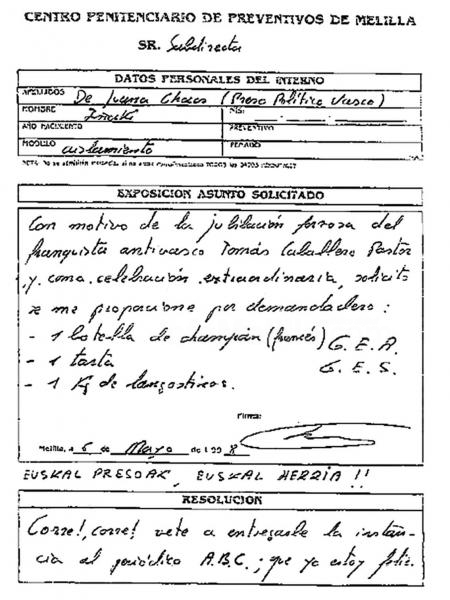 CENTRO PENITENCIARIO DE PREVENTIVOS DE MELILLA
SR. Subdirector
DATOS PERSONALES DEL INTERNO
APELLIDOS De Juana Chaos (Preso Político Vasco)
NOMBRE Iñaki NIS:
AÑO NACIMIENTO PREVENTIVO
MODULO aislamiento PENADO
EXPOSICION ASUNTO SOLICITADO
Con motivo de la jubilación forzosa del
franquista antivasco Tomás Caballero Pastor
y como celebración extraordinaria, solicito
se me proporcione por demandadero:
- 1 botella de champán (francés) G.E.A.
- 1 tarta G.E.S.
- 1 Kg de langostinos.
Firma:
Melilla, a 6 de Mayo de 1.998
EUSKAL PRESOAK, EUSKAL HERRIA !!
RESOLUCION
Corre!, corre! vete a entregarle la instan-
cia al periódico A.B.C.; que ya estoy feliz.